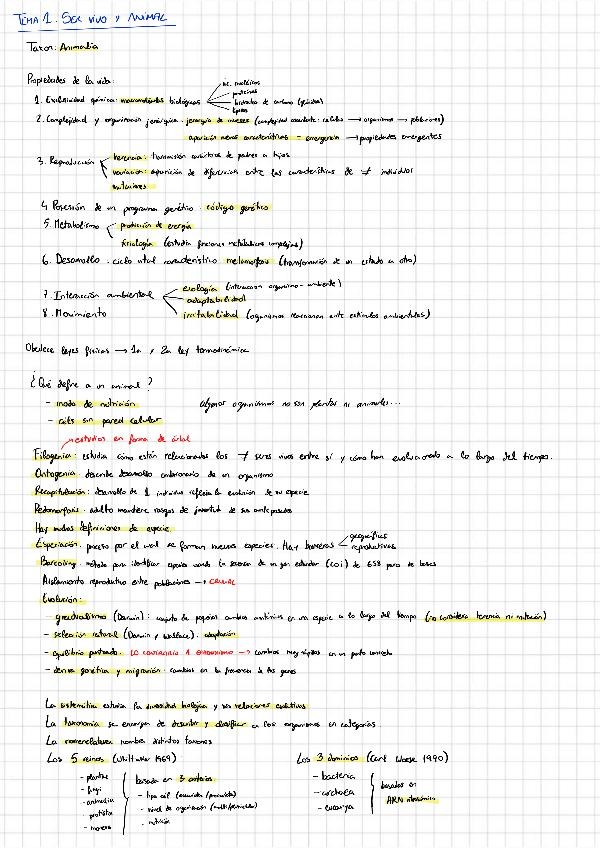 TEMA 1. SER VIVO Y ANIMAL
Taxon: Animalia
Propiedades de la vida:
1. Exclusividad química: macromoléculas biológicas
ác. nucleicos
proteínas
hidratos de carbono (glúcidos)
lípidos
2. Complejidad y organización jerárquica: jerarquía de niveles (complejidad creciente: células → organismo → poblaciones)
aparición nuevas características = emergencia → propiedades emergentes
3. Reproducción
herencia: transmisión caracteres de padres a hijos
variación: aparición de diferencias entre las características de ≠ individuos
mutaciones
4. Posesión de un programa genético: código genético
5. Metabolismo
producción de energía
fisiología (estudia funciones metabólicas complejas)
6. Desarrollo: ciclo vital característico: metamorfosis (transformación de un estado a otro)
7. Interacción ambiental
ecología (interacción organismo-ambiente)
adaptabilidad
irritabilidad (organismos reaccionan ante estímulos ambientales)
8. Movimiento
Obedece leyes físicas → 1a y 2a ley termodinámica
¿Qué define a un animal?
- modo de nutrición
algunos organismos no son plantas ni animales...
- céls sin pared celular
estudios en forma de árbol
Filogenia: estudia cómo están relacionados los ≠ seres vivos entre sí y cómo han evolucionado a lo largo del tiempo.
Ontogenia: describe desarrollo embrionario de un organismo
Recapitulación: desarrollo de 1 individuo refleja la evolución de su especie
Pedomorfosis: adulto mantiene rasgos de juventud de sus antepasados
Hay muchas definiciones de especie.
Especiación: proceso por el cual se forman nuevas especies. Hay barreras
geográficas
reproductivas
Barcoding: método para identificar especies usando la secuencia de un gen estándar (COI) de 658 pares de bases
Aislamiento reproductivo entre poblaciones → CRUCIAL
Evolución:
- gradualismo (Darwin): conjunto de pequeños cambios continuos en una especie a lo largo del tiempo (no considera herencia ni mutación)
- selección natural (Darwin y Wallace): adaptación
- equilibrio puntuado: LO CONTRARIO A GRADUALISMO → cambios muy rápidos en un punto concreto
- deriva genética y migración: cambios en la frecuencia de los genes
La sistemática estudia la diversidad biológica y sus relaciones evolutivas
La taxonomía se encarga de describir y clasificar a los organismos en categorías.
La nomenclatura nombra distintos taxones
Los 5 reinos (Whittaker 1969)
- plantae
- fungi
- animalia
- protista
- monera
basada en 3 criterios
- tipo cél (eucariota/procariota)
- nivel de organización (multi/unicelular)
- nutrición
Los 3 dominios (Carl Woese 1990)
- bacteria
- archaea
- eucarya
basados en
ARN ribosómico